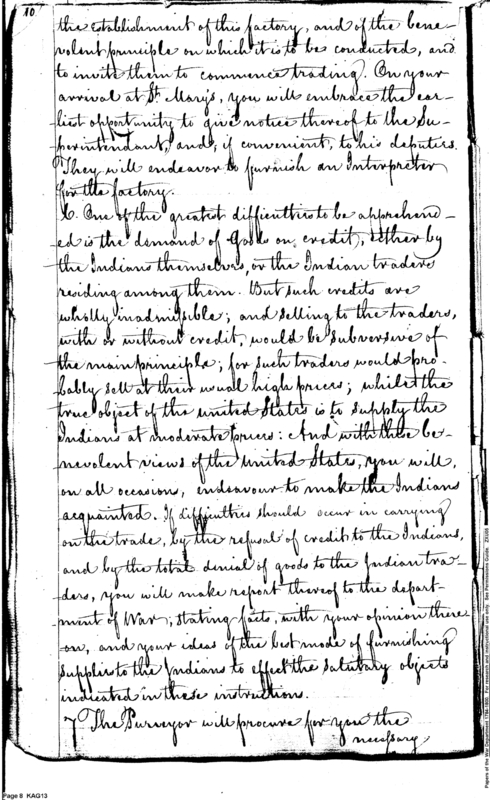 10
the establishment of this factory, and of the bene-
volent principle on which it is to be conducted, and
to invite them to commence trading. On your
arrival at St. Mary's, you will embrace the ear-
liest opportunity to give notice thereof to the Su-
perintendant, and, if convenient, to his deputies.
They will endeavor to furnish an Interpreter
for the factory.
6. One of the greatest difficulties to be apprehend-
ed is the demand of Goods on credit, either by
the Indians themselves, or the Indian traders
residing among them. But such credits are
wholly inadmissible; and selling to the traders,
with or without credit, would be subversive of
the main principle; for such traders would pro-
bably sell at their usual high prices; while the
true object of the united States is to supply the
Indians at moderate prices: And with these be-
nevolent views of the united States, you will,
on all occasion, endeavour to make the Indians
acquainted. If difficulties should occur in carrying
on the trade, by the refusal of credit to the Indians,
and by the total denial of goods to the Indian tra-
ders, you will make report thereof to the depart-
ment of War, stating facts, with your opinion there-
on, and your ideas of the best mode of furnishing
supplies to the Indians to effect the salutary objects
indicated in these instructions.
7 The Purveyor will procure for you the
necessary
Page 8 KAG13
Papers of the War Department 1784-1800. For research and instructional use only. See Permissions Guide.